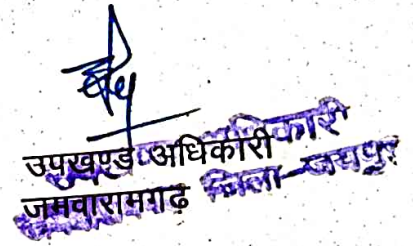 उपखण्ड अधिकारी
जमवारामगढ़ जिला-जयपुर